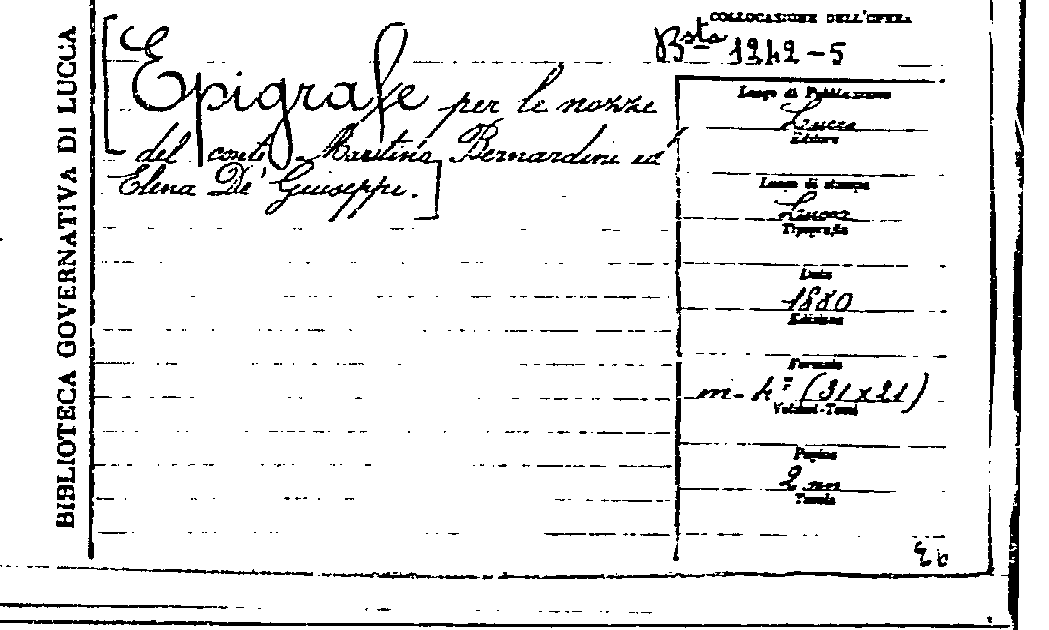 BIBLIOTECA GOVERNATIVA DI LUCCA
COLLOCAZIONE DELL'OPERA
Bsta 1242-5
[Epigrafe per le nozze
del conte Martino Bernardini ed
Elena De' Giuseppi.]
Luogo di Pubblicazione
Lucca
Editore
Luogo di stampa
Lucca
Tipografia
Data
1880
Edizione
Formato
in-4º (31x21)
Volumi-Tomi
Pagine
2 nn
Tavole